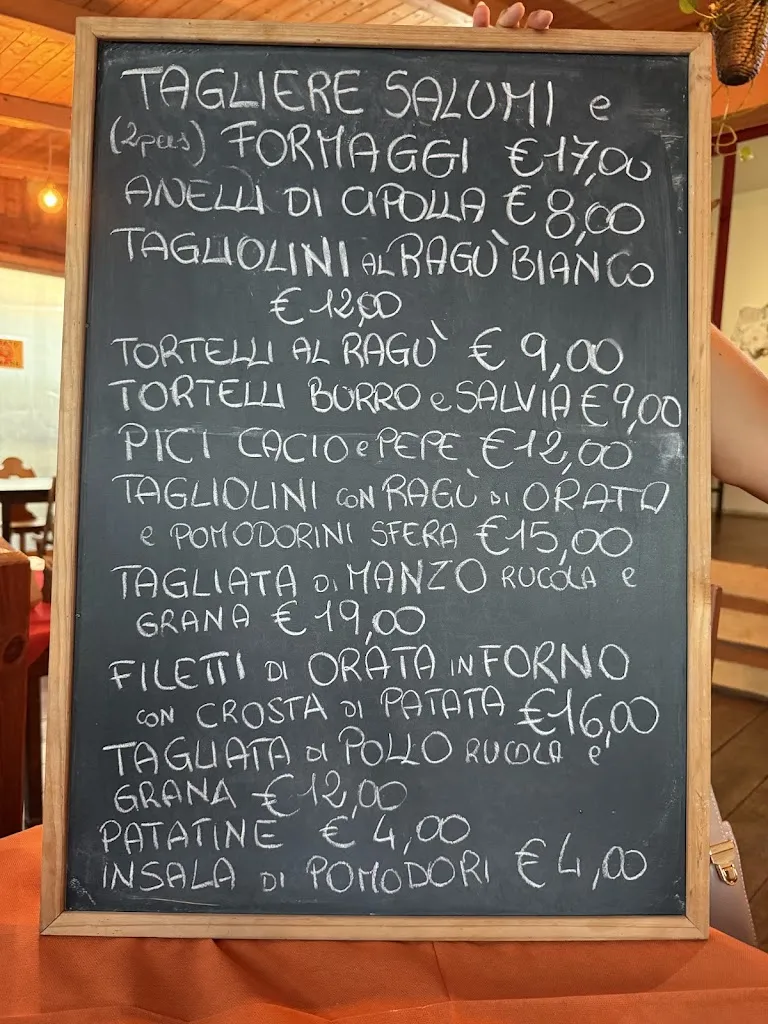 TAGLIERE SALUMI e
(2pers) FORMAGGI €17,00
ANELLI DI CIPOLLA €8,00
TAGLIOLINI AL RAGÙ BIANCO
€12,00
TORTELLI AL RAGÙ €9,00
TORTELLI BURRO e SALVIA €9,00
PICI CACIO e PEPE €12,00
TAGLIOLINI CON RAGÙ DI ORATA
e POMODORINI SFERA €15,00
TAGLIATA DI MANZO RUCOLA e
GRANA €19,00
FILETTI DI ORATA IN FORNO
CON CROSTA DI PATATA €16,00
TAGLIATA DI POLLO RUCOLA e
GRANA €12,00
PATATINE €4,00
INSALA DI POMODORI €4,00